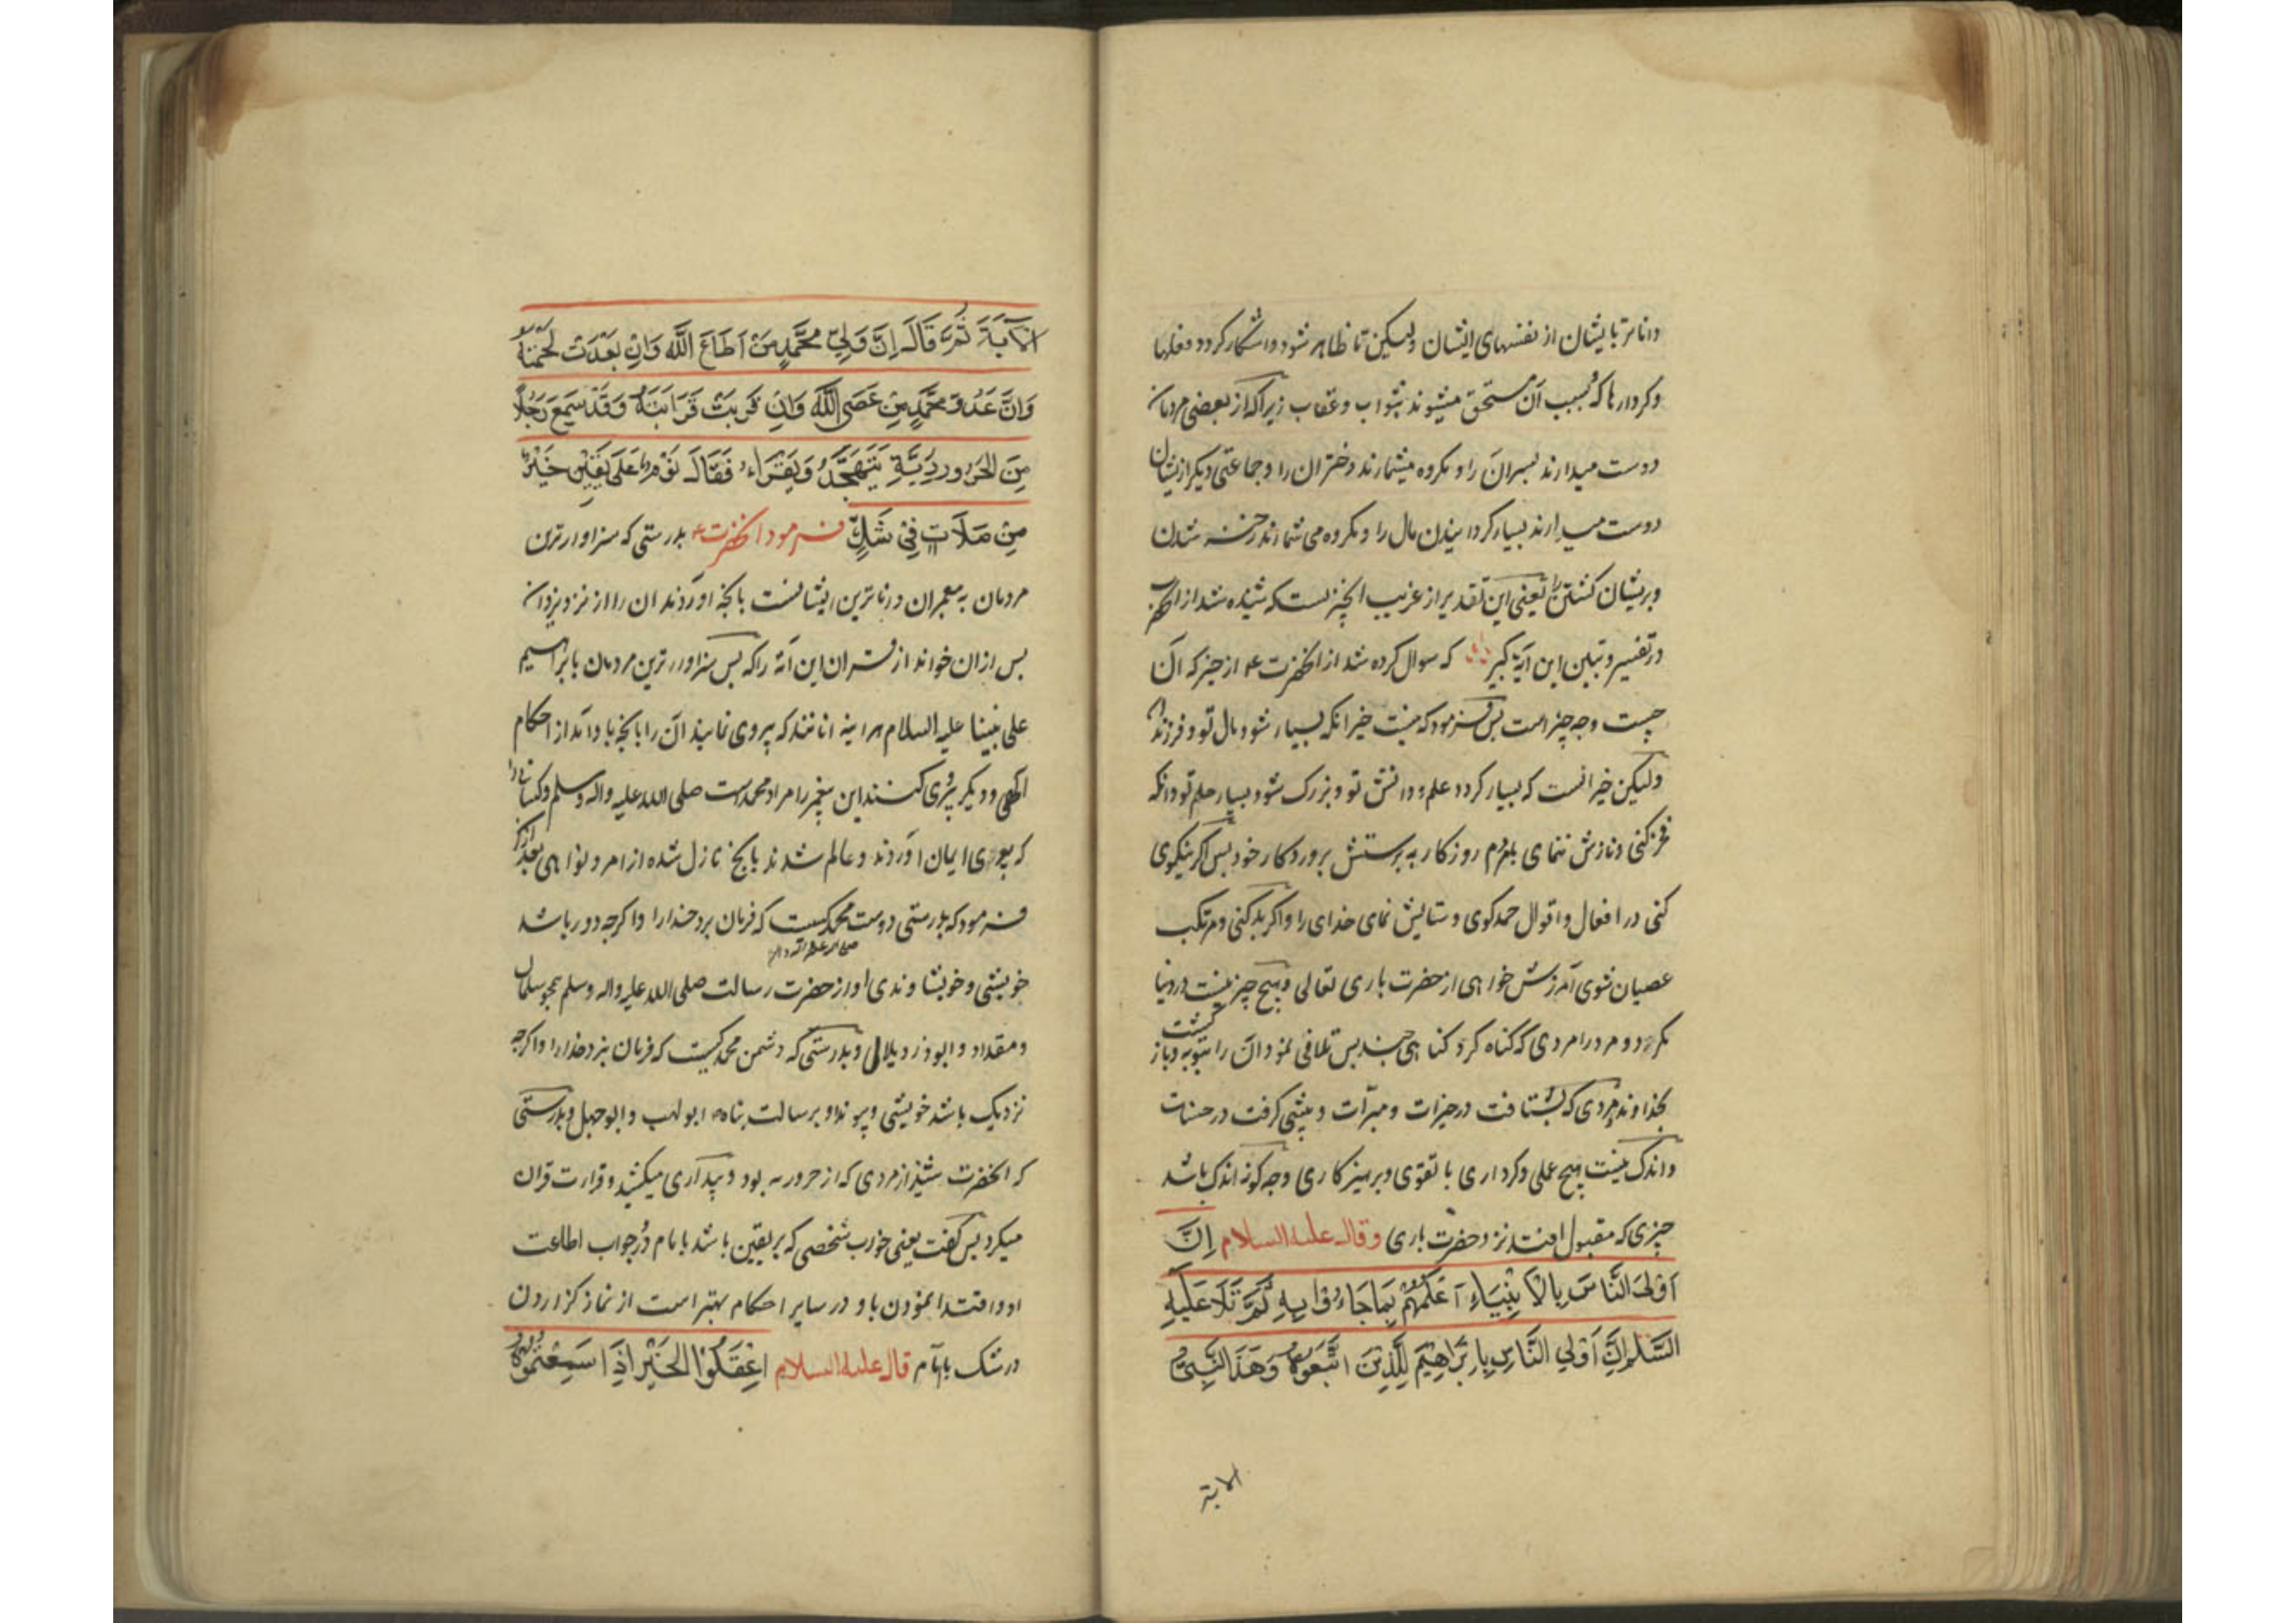 داناتر بایشان از نفسهای ایشان ولیکن تا ظاهر شود و اشکار کردد فعلها
و کردارها که بسبب آن مستحق میشوند بثواب و عقاب زیرا که از بعضی مردمان
دوست میدارند پسران را و مکروه میشمارند دختران را و جماعتی دیکر ازیشان
دوست میدارند بسیار کردانیدن مال را و مکروه می شمارند رخنه شدن
و پریشان کشتن را یعنی این تقدیر از غریب انچیزیست که شنیده شد از
در تفسیر و تبیین این آیه که سوال کرده شد از انحضرت ع از خیر که آن
چیست و چه چیز است پس فرمود که نیست خیر انکه بسیار شود مال تو و فرزند
ولیکن خیر انست که بسیار کردد علم و دانش تو و بزرک شود و بسیار حلم تو و انکه
فخر کنی و نازش نمای بمردم روزکار به پرستش پروردکار خود پس اکر نیکوی
کنی در افعال و اقوال حمد کوی و ستایش نمای خدای را و اکر بد کنی و مرتکب
عصیان شوی آمرزش خواهی از حضرت باری تعالی و هیچ چیز نیست در دنیا
مکر دو مرد را مردی که کناه کرد کناهی چند پس تلافی نمود آن را بتوبه و باز کشت
بخداوند و مردی که بشتافت در خیرات و مبرّات و پیشی کرفت در حسنات
و اندک نیست هیچ عملی و کرداری با تقوی و پرهیزکاری و چه کونه اندک باشد
چیزی که مقبول افتد نزد حضرت باری وقال علیه السلام اِنَّ
اَوْلَی النَّاسِ بِالْاَنْبِیَاءِ اَعْلَمُهُمْ بِمَا جَاءُوْا بِهِ ثُمَّ تَلَا عَلَیْهِ
السَّلَام اِنَّ اَوْلَی النَّاسِ بِاِبْرَاهِیْمَ لِلَّذِیْنَ اتَّبَعُوْهُ وَهٰذَا النَّبِیُّ
الایة
الْاٰیَةَ ثُمَّ قَالَ اِنَّ وَلِیَّ مُحَمَّدٍ مَنْ اَطَاعَ اللّٰهَ وَاِنْ بَعُدَتْ لُحْمَتُهُ
وَاِنَّ عَدُوَّ مُحَمَّدٍ مَنْ عَصَی اللّٰهَ وَاِنْ قَرُبَتْ قَرَابَتُهُ وَقَدْ سَمِعَ رَجُلًا
مِنَ الْحَرُوْرِیَّةِ یَتَهَجَّدُ وَیَقْرَاءُ فَقَالَ نَوْمٌ عَلٰی یَقِیْنٍ خَیْرٌ
مِنْ صَلَاتٍ فِیْ شَكٍّ فرمود انحضرت ع بدرستی که سزاوارترین
مردمان به پیغمبران داناترین ایشانست بانچه آوردند ان را از نزد یزدان
پس ازان خواند از قران این آیه را که پس سزاوارترین مردمان بابراهیم
علی نبینا علیه السلام هراینه انانند که پیروی نمایند آن را بانچه باو آمد از احکام
الهی و دیکر پیروی کنند این پیغمبر را مراد محمدست صلی الله علیه واله وسلم و کسانی را
که بوی ایمان آوردند و عالم شدند بانچه نازل شده از امر و نواهی بعد ازان
فرمود که بدرستی دوست محمد صلی الله علیه واله کسیست که فرمان برد خدا را و اکرچه دور باشد
خویشی و خویشاوندی او از حضرت رسالت صلی الله علیه واله وسلم همچو سلمان
و مقداد و ابوذر و بلال و بدرستی که دشمن محمد کسیت که فرمان نبرد خدا را و اکرچه
نزدیک باشد خویشی و پیوند او برسالت پناه ابولهب و ابوجهل و بدرستی
که انحضرت شنید از مردی که از حروریه بود و بیداری میکشید و قرات قران
میکرد پس کفت یعنی خواب شخصی که بر یقین باشد بامام و در جواب اطاعت
او و اقتدا نمودن باو در سایر احکام بهتر است از نماز کزاردن
در شک بامام قال علیه السلام اِعْقِلُوا الْخَبَرَ اِذَا سَمِعْتُمُوْهُ